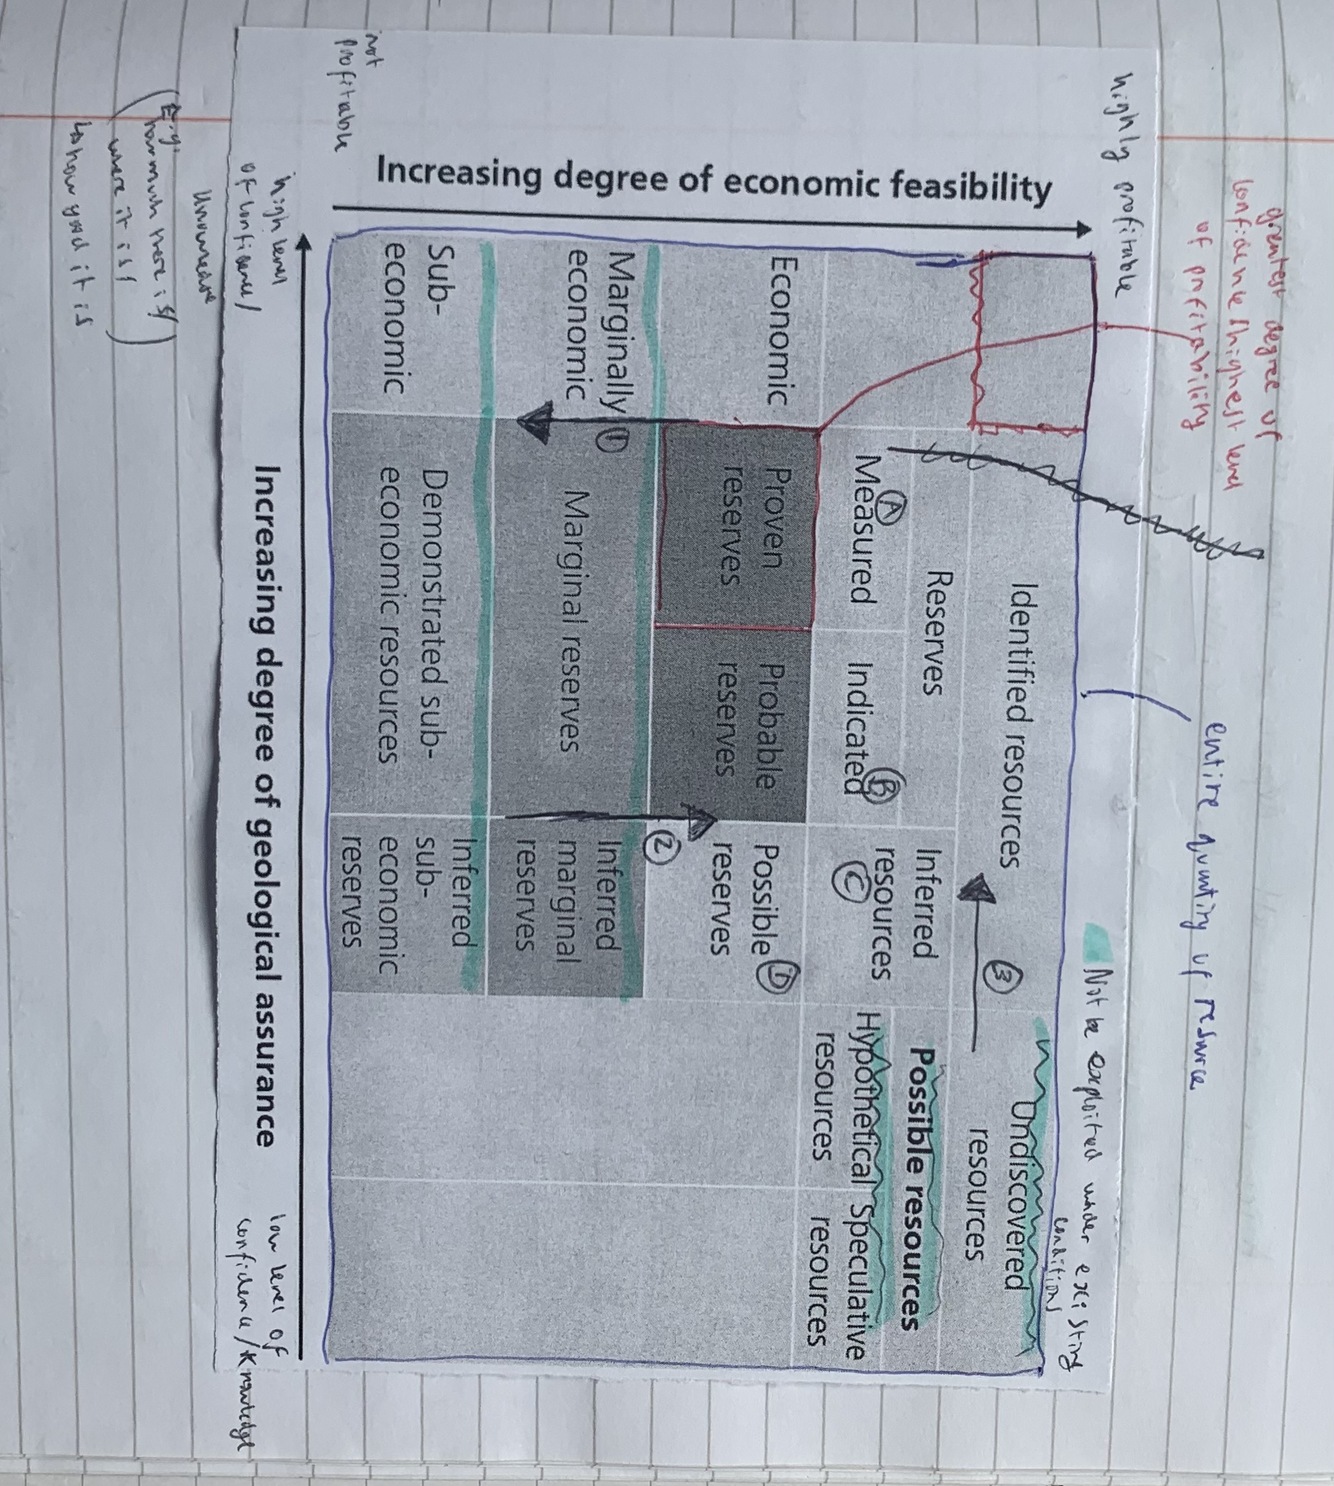 greatest degree of
confidence & highest level
of profitability
entire quantity of resource
Not be exploited under existing
conditions
highly profitable
Increasing degree of economic feasibility
not
profitable
Identified resources
Undiscovered
resources
③
Reserves
Inferred
resources
Possible resources
Measured
Indicated
Hypothetical
resources
Speculative
resources
Ⓐ
Ⓑ
Ⓒ
Economic
Proven
reserves
Probable
reserves
Possible
reserves
Ⓓ
②
Marginally
economic
①
Marginal reserves
Inferred
marginal
reserves
Sub-
economic
Demonstrated sub-
economic resources
Inferred
sub-
economic
reserves
Increasing degree of geological assurance
high level
of confidence/
low level of
confidence/knowledge
(E.g.
how much there is/
where it is/
how good it is